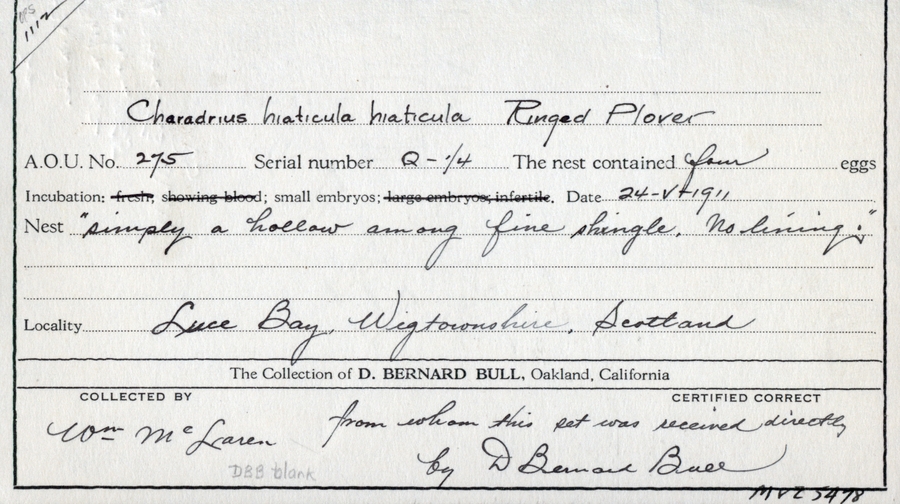 1112
Charadrius hiaticula hiaticula Ringed Plover
A.O.U. No. 275 Serial number Q-1/4 The nest contained four eggs
Incubation: fresh; showing blood; small embryos; large embryos; infertile. Date 24-V-1911
Nest "simply a hollow among fine shingle. No lining."
Locality Luce Bay, Wigtownshire, Scotland
The Collection of D. BERNARD BULL, Oakland, California
COLLECTED BY CERTIFIED CORRECT
Wm McLaren from whom this set was received directly
by D Bernard Bull
DBB blank
MVZ 5478